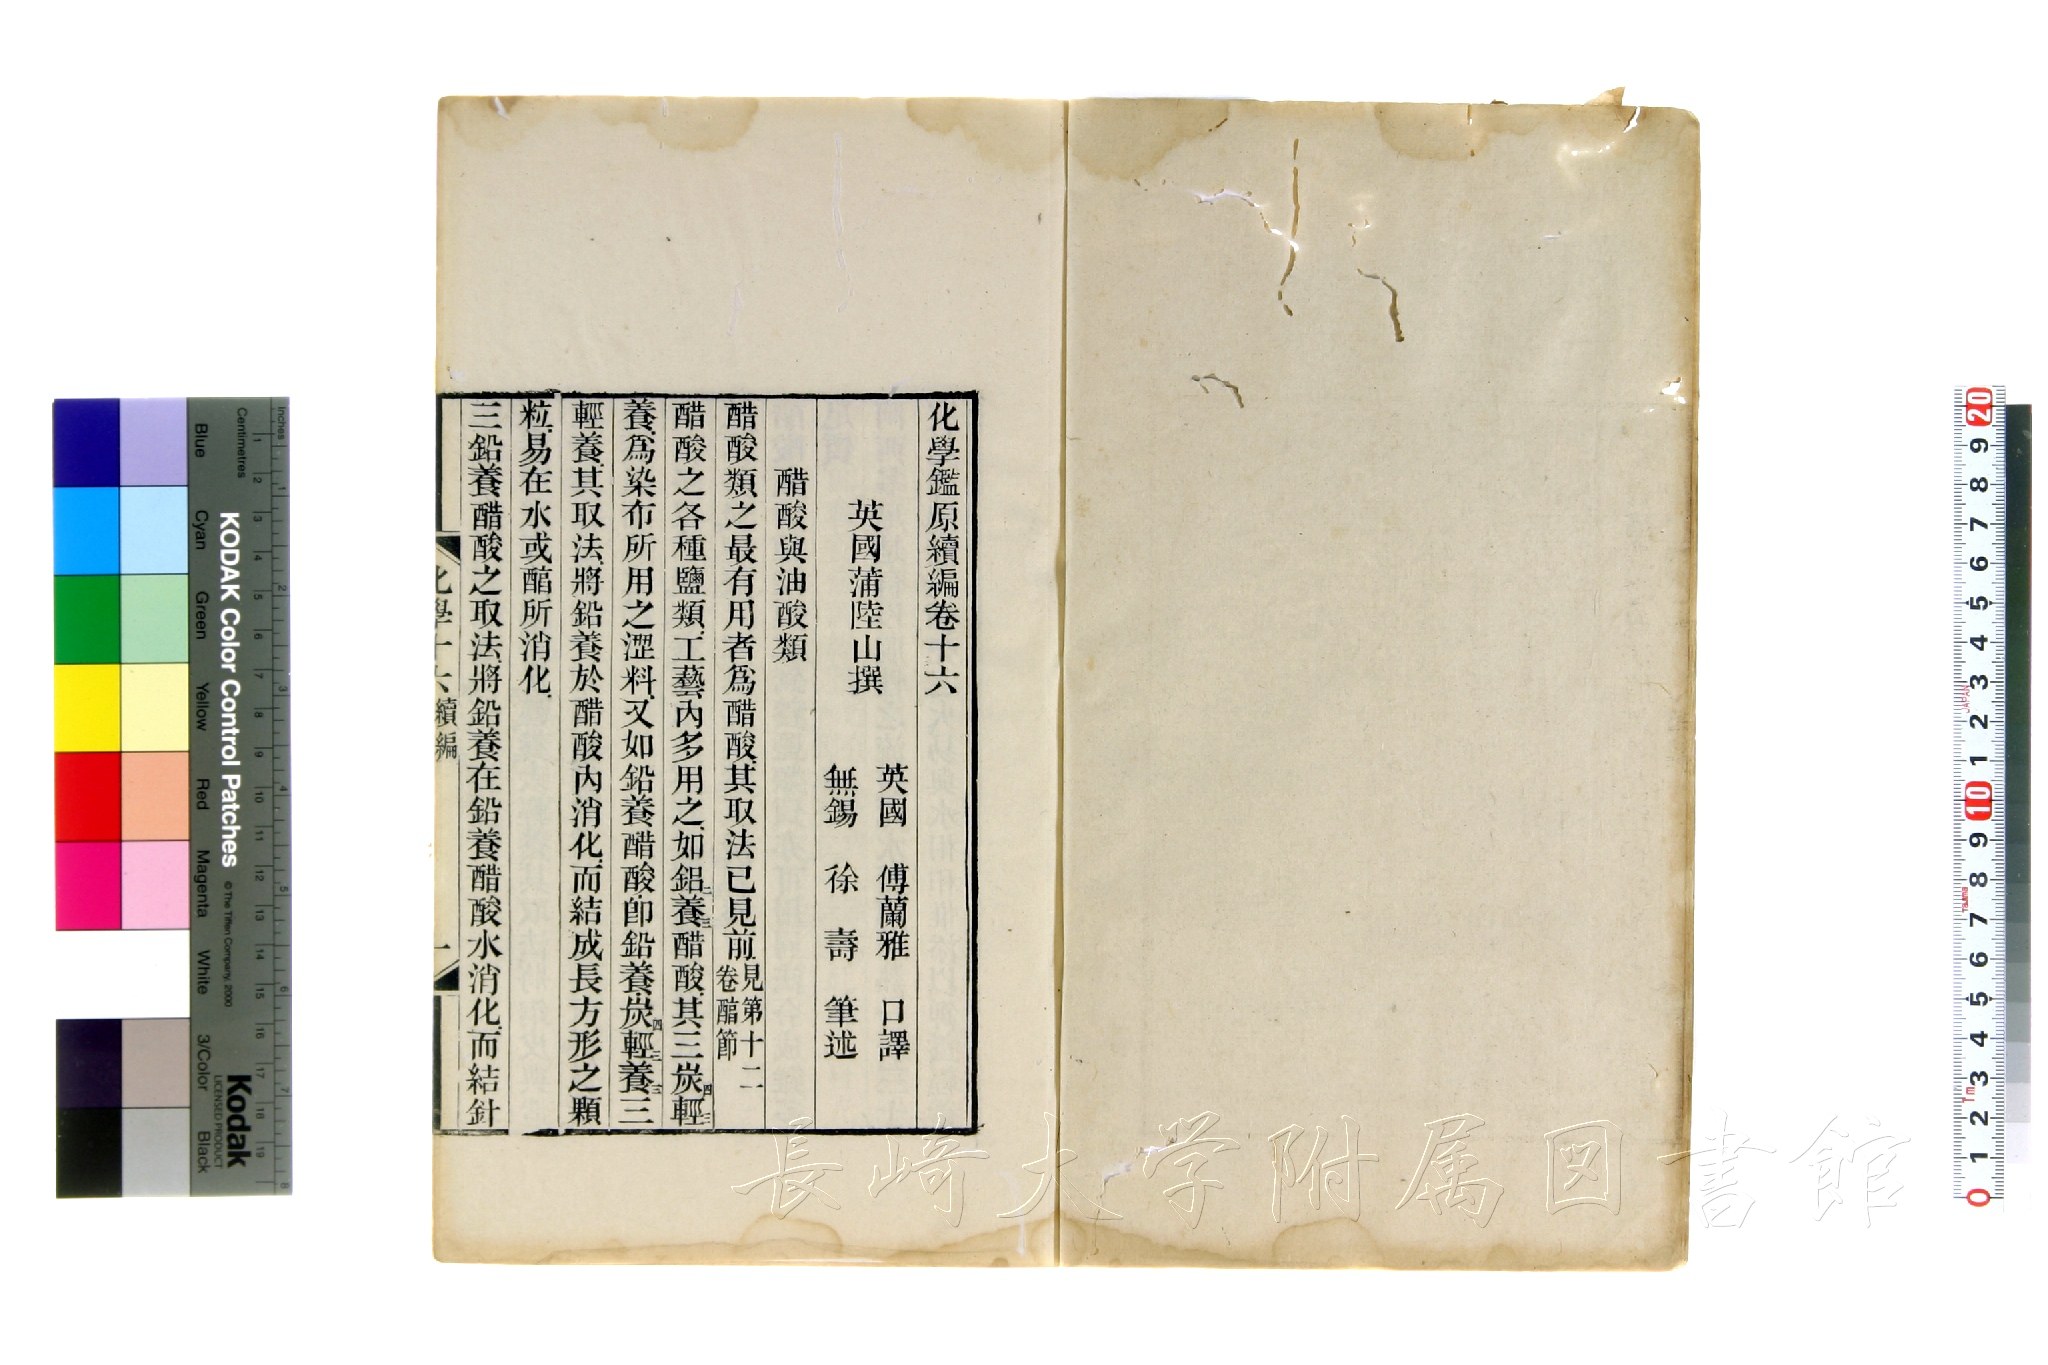 化學鑑原續編卷十六
英國蒲陸山撰
英國 傅蘭雅 口譯
無錫 徐壽 筆述
醋酸與油酸類
醋酸類之最有用者爲醋酸其取法已見前見第十二卷醕節
醋酸之各種鹽類工藝內多用之如鋁二養三醋酸其三炭四輕三
養爲染布所用之澀料又如鉛養醋酸卽鉛養炭四輕三養三三
輕養其取法將鉛養於醋酸內消化而結成長方形之顆
粒易在水或醕所消化
三鉛養醋酸之取法將鉛養在鉛養醋酸水消化而結針
化學十六 續編
一
長崎大学附属図書館
KODAK Color Control Patches
© The Tiffen Company, 2000
Kodak
LICENSED PRODUCT
Inches
Centimetres
Blue
Cyan
Green
Yellow
Red
Magenta
White
3/Color
Black
1 2 3 4 5 6 7 8 9 10 11 12 13 14 15 16 17 18 19
1 2 3 4 5 6 7 8
20 9 8 7 6 5 4 3 2 1 10 9 8 7 6 5 4 3 2 1 0
JAPAN
Tajima
1m